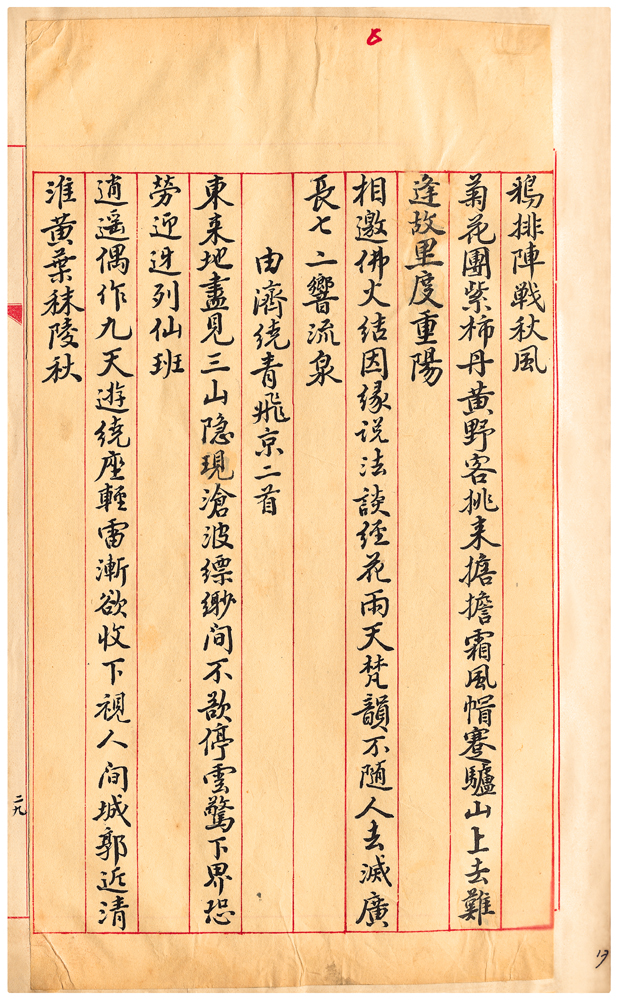 鴉排陣戰秋風
菊花團紫柿丹黃野客挑来擔擔霜風帽蹇驢山上去難
逢故里度重陽
相邀佛火结因緣说法談經花雨天梵韻不隨人去滅廣
長七二響流泉
由濟繞青飛京二首
東来地盡見三山隐現滄波縹緲间不欲停雲驚下界恐
勞迎迓列仙班
逍遥偶作九天遊繞座輕雷漸欲收下視人间城郭近清
淮黃葉秣陵秋
二九